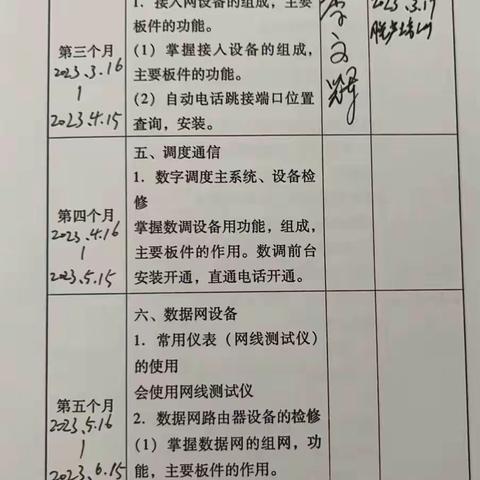 1. 接入网设备的组成，主要
板件的功能。
(1) 掌握接入设备的组成，
主要板件的功能。
(2) 自动电话跳接端口位置
查询，安装。
第三个月
2023.3.16
|
2023.4.15
2023.3.17
脱产培训
五、调度通信
1. 数字调度主系统、设备检
修
掌握数调设备用功能，组成，
主要板件的作用。数调前台
安装开通，直通电话开通。
第四个月
2023.4.16
|
2023.5.15
六、数据网设备
1. 常用仪表（网线测试仪）
的使用
会使用网线测试仪
2. 数据网路由器设备的检修
(1) 掌握数据网的组网，功
能，主要板件的作用。
第五个月
2023.5.16
|
2023.6.15